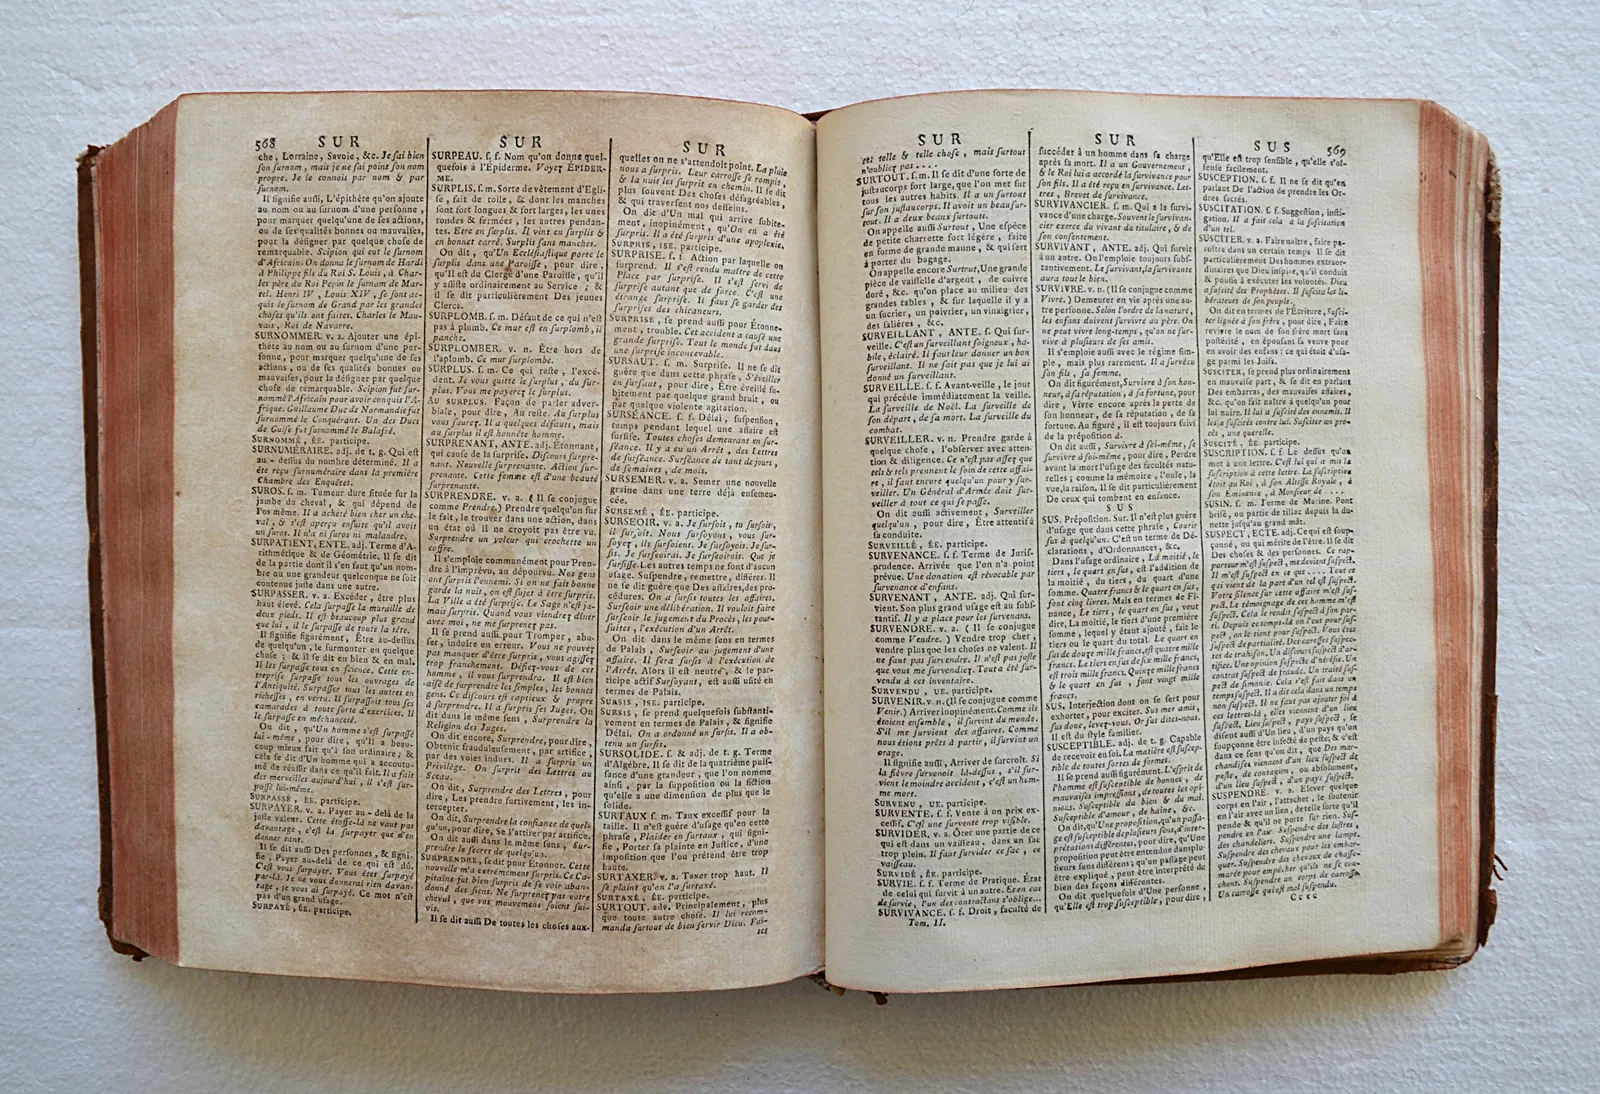 568 SUR
che, Lorraine, Savoie, &c. Je ſai bien
ſon ſurnom, mais je ne ſai point ſon nom
propre. Je le connois par nom & par
ſurnom.
Il ſignifie auſſi, L'épithète qu'on ajoute
au nom ou au ſurnom d'une perſonne,
pour marquer quelqu'une de ſes actions,
ou de ſes qualités bonnes ou mauvaiſes,
pour la déſigner par quelque choſe de
remarquable. Scipion qui eut le ſurnom
d'Africain. On donna le ſurnom de Hardi
à Philippe fils du Roi S. Louis, à Char-
les père du Roi Pepin le ſurnom de Mar-
tel. Henri IV, Louis XIV, ſe ſont ac-
quis le ſurnom de Grand par les grandes
choſes qu'ils ont faites. Charles le Mau-
vais, Roi de Navarre.
SURNOMMER. v. a. Ajouter une épi-
thète au nom ou au ſurnom d'une per-
ſonne, pour marquer quelqu'une de ſes
actions, ou de ſes qualités bonnes ou
mauvaiſes, pour la déſigner par quelque
choſe de remarquable. Scipion fut ſur-
nommé l'Africain pour avoir conquis l'A-
frique. Guillaume Duc de Normandie fut
ſurnommé le Conquérant. Un des Ducs
de Guiſe fut ſurnommé le Balafré.
SURNOMMÉ, ÉE. participe.
SURNUMÉRAIRE. adj. de t. g. Qui eſt
au-deſſus du nombre déterminé. Il a
été reçu ſurnuméraire dans la première
Chambre des Enquêtes.
SUROS. ſ. m. Tumeur dure ſituée ſur la
jambe du cheval, & qui dépend de
l'os même. Il a acheté bien cher un che-
val, & s'eſt aperçu enſuite qu'il avoit
un ſuros. Il n'a ni ſuros ni malandre.
SURPATIENT, ENTE. adj. Terme d'A-
rithmétique & de Géométrie. Il ſe dit
de la partie dont il s'en faut qu'un nom-
bre ou une grandeur quelconque ne ſoit
contenue juſte dans une autre.
SURPASSER. v. a. Excéder, être plus
haut élevé. Cela ſurpaſſe la muraille de
deux pieds. Il eſt beaucoup plus grand
que lui, il le ſurpaſſe de toute la tête.
Il ſignifie figurément, Être au-deſſus
de quelqu'un, le ſurmonter en quelque
choſe; & il ſe dit en bien & en mal.
Il les ſurpaſſe tous en ſcience. Cette en-
trepriſe ſurpaſſe tous les ouvrages de
l'Antiquité. Surpaſſer tous les autres en
richeſſes, en vertu. Il ſurpaſſoit tous ſes
camarades à toute ſorte d'exercices. Il
le ſurpaſſe en méchanceté.
On dit, qu'Un homme s'eſt ſurpaſſé
lui-même, pour dire, qu'il a beau-
coup mieux fait qu'à ſon ordinaire; &
cela ſe dit D'un homme qui a accoutu-
mé de réuſſir dans ce qu'il fait. Il a fait
des merveilles aujourd'hui, il s'eſt ſur-
paſſé lui-même.
SURPASSÉ, ÉE. participe.
SURPAYER. v. a. Payer au-delà de la
juſte valeur. Cette étoffe-là ne vaut pas
davantage, c'eſt la ſurpayer que d'en
donner tant.
Il ſe dit auſſi Des perſonnes, & ſigni-
fie, Payer au-delà de ce qui eſt dû.
C'eſt vous ſurpayer. Vous êtes ſurpayé
par-là. Je ne vous donnerai rien davan-
tage, je vous ai ſurpayé. Ce mot n'eſt
pas d'un grand uſage.
SURPAYÉ, ÉE. participe.
SUR
SURPEAU. ſ. f. Nom qu'on donne quel-
quefois à l'Épiderme. Voyez ÉPIDER-
ME.
SURPLIS. ſ. m. Sorte de vêtement d'Égli-
ſe, fait de toile, & dont les manches
ſont fort longues & fort larges, les unes
rondes & fermées, les autres pendan-
tes. Etre en ſurplis. Il vint en ſurplis &
en bonnet carré. Surplis ſans manches.
On dit, qu'Un Eccléſiaſtique porte le
ſurplis dans une Paroiſſe, pour dire,
qu'il eſt du Clergé d'une Paroiſſe, qu'il
y aſſiſte ordinairement au Service; &
il ſe dit particulièrement Des jeunes
Clercs.
SURPLOMB. ſ. m. Défaut de ce qui n'eſt
pas à plomb. Ce mur eſt en ſurplomb, il
panche.
SURPLOMBER. v. n. Être hors de
l'aplomb. Ce mur ſurplombe.
SURPLUS. ſ. m. Ce qui reſte, l'excé-
dent. Je vous quitte le ſurplus, du ſur-
plus. Vous me payerez le ſurplus.
AU SURPLUS. Façon de parler adver-
biale, pour dire, Au reſte. Au ſurplus
vous ſaurez. Il a quelques défauts, mais
au ſurplus il eſt honnête homme.
SURPRENANT, ANTE. adj. Étonnant,
qui cauſe de la ſurpriſe. Diſcours ſurpre-
nant. Nouvelle ſurprenante. Action ſur-
prenante. Cette femme eſt d'une beauté
ſurprenante.
SURPRENDRE. v. a. (Il ſe conjugue
comme Prendre.) Prendre quelqu'un ſur
le fait, le trouver dans une action, dans
un état où il ne croyoit pas être vu.
Surprendre un voleur qui crochette un
coffre.
Il s'emploie communément pour Pren-
dre à l'imprévu, au dépourvu. Nos gens
ont ſurpris l'ennemi. Si on ne fait bonne
garde la nuit, on eſt ſujet à être ſurpris.
La Ville a été ſurpriſe. Le Sage n'eſt ja-
mais ſurpris. Quand vous viendrez dîner
avec moi, ne me ſurprenez pas.
Il ſe prend auſſi pour Tromper, abu-
ſer, induire en erreur. Vous ne pouvez
pas manquer d'être ſurpris, vous agiſſez
trop franchement. Défiez-vous de cet
homme, il vous ſurprendra. Il eſt bien
aiſé de ſurprendre les ſimples, les bonnes
gens. Ce diſcours eſt captieux & propre
à ſurprendre. Il a ſurpris ſes Juges. On
dit dans le même ſens, Surprendre la
Religion des Juges.
On dit encore, Surprendre, pour dire,
Obtenir frauduleuſement, par artifice,
par des voies indues. Il a ſurpris un
Privilége. On ſurprit des Lettres au
Sceau.
On dit, Surprendre des Lettres, pour
dire, Les prendre furtivement, les in-
tercepter.
On dit, Surprendre la confiance de quel-
qu'un, pour dire, Se l'attirer par artifice.
On dit auſſi dans le même ſens, Sur-
prendre le ſecret de quelqu'un.
SURPRENDRE, ſe dit pour Étonner. Cette
nouvelle m'a extrêmement ſurpris. Ce Ca-
pitaine fut bien ſurpris de ſe voir aban-
donné des ſiens. Ne ſurprenez pas votre
cheval, que vos mouvemens ſoient ſui-
vis.
Il ſe dit auſſi De toutes les choſes aux-
SUR
quelles on ne s'attendoit point. La pluie
nous a ſurpris. Leur carroſſe ſe rompit,
& la nuit les ſurprit en chemin. Il ſe dit
plus ſouvent Des choſes déſagréables,
& qui traverſent nos deſſeins.
On dit d'Un mal qui arrive ſubite-
ment, inopinément, qu'On en a été
ſurpris. Il a été ſurpris d'une apoplexie.
SURPRIS, ISE. participe.
SURPRISE. ſ. f. Action par laquelle on
ſurprend. Il s'eſt rendu maître de cette
Place par ſurpriſe. Il s'eſt ſervi de
ſurpriſe autant que de force. C'eſt une
étrange ſurpriſe. Il faut ſe garder des
ſurpriſes des chicaneurs.
SURPRISE, ſe prend auſſi pour Étonne-
ment, trouble. Cet accident a cauſé une
grande ſurpriſe. Tout le monde fut dans
une ſurpriſe inconcevable.
SURSAUT. ſ. m. Surpriſe. Il ne ſe dit
guère que dans cette phraſe, S'éveiller
en ſurſaut, pour dire, Être éveillé ſu-
bitement par quelque grand bruit, ou
par quelque violente agitation.
SURSÉANCE. ſ. f. Délai, ſuſpenſion,
temps pendant lequel une affaire eſt
ſurſiſe. Toutes choſes demeurant en ſur-
ſéance. Il y a eu un Arrêt, des Lettres
de ſurſéance. Surſéance de tant de jours,
de ſemaines, de mois.
SURSEMER. v. a. Semer une nouvelle
graine dans une terre déjà enſemen-
cée.
SURSEMÉ, ÉE. participe.
SURSEOIR. v. a. Je ſurſois, tu ſurſois,
il ſurſoit. Nous ſurſoyons, vous ſur-
ſoyez, ils ſurſoient. Je ſurſoyois. Je ſur-
ſis. Je ſurſeoirai. Je ſurſeoirois. Que je
ſurſiſſe. Les autres temps ne ſont d'aucun
uſage. Suſpendre, remettre, différer. Il
ne ſe dit guère que Des affaires, des pro-
cédures. On a ſurſis toutes les affaires.
Surſeoir une délibération. Il vouloit faire
ſurſeoir le jugement du Procès, les pour-
ſuites, l'exécution d'un Arrêt.
On dit dans le même ſens en termes
de Palais, Surſeoir au jugement d'une
affaire. Il ſera ſurſis à l'exécution de
l'Arrêt. Alors il eſt neutre, & le par-
ticipe actif Surſoyant, eſt auſſi uſité en
termes de Palais.
SURSIS, ISE. participe.
SURSIS, ſe prend quelquefois ſubſtanti-
vement en termes de Palais, & ſignifie
Délai. On a ordonné un ſurſis. Il a ob-
tenu un ſurſis.
SURSOLIDE. ſ. & adj. de t. g. Terme
d'Algèbre. Il ſe dit de la quatrième puiſ-
ſance d'une grandeur, que l'on nomme
ainſi, par la ſuppoſition ou la fiction
qu'elle a une dimenſion de plus que le
ſolide.
SURTAUX. ſ. m. Taux exceſſif pour la
taille. Il n'eſt guère d'uſage qu'en cette
phraſe, Plaider en ſurtaux, qui ſigni-
fie, Porter ſa plainte en Juſtice, d'une
impoſition que l'on prétend être trop
haute.
SURTAXER. v. a. Taxer trop haut. Il
ſe plaint qu'on l'a ſurtaxé.
SURTAXÉ, ÉE. participe.
SURTOUT. adv. Principalement, plus
que toute autre choſe. Il lui recom-
manda ſurtout de bien ſervir Dieu. Fai-
tes
SUR
tes telle & telle choſe, mais ſurtout
n'oubliez pas....
SURTOUT. ſ. m. Il ſe dit d'une ſorte de
juſtaucorps fort large, que l'on met ſur
tous les autres habits. Il a un ſurtout
ſur ſon juſtaucorps. Il avoit un beau ſur-
tout. Il a deux beaux ſurtouts.
On appelle auſſi Surtout, Une eſpèce
de petite charrette fort légère, faite
en forme de grande manne, & qui ſert
à porter du bagage.
On appelle encore Surtout, Une grande
pièce de vaiſſelle d'argent, de cuivre
doré, &c. qu'on place au milieu des
grandes tables, & ſur laquelle il y a
un ſucrier, un poivrier, un vinaigrier,
des ſalières, &c.
SURVEILLANT, ANTE. ſ. Qui ſur-
veille. C'eſt un ſurveillant ſoigneux, ha-
bile, éclairé. Il faut leur donner un bon
ſurveillant. Il ne fait pas que je lui ai
donné un ſurveillant.
SURVEILLE. ſ. f. Avant-veille, le jour
qui précède immédiatement la veille.
La ſurveille de Noël. La ſurveille de
ſon départ, de ſa mort. La ſurveille du
combat.
SURVEILLER. v. n. Prendre garde à
quelque choſe, l'obſerver avec atten-
tion & diligence. Ce n'eſt pas aſſez que
tels & tels prennent le ſoin de cette affai-
re, il faut encore quelqu'un pour y ſur-
veiller. Un Général d'Armée doit ſur-
veiller à tout ce qui ſe paſſe.
On dit auſſi activement, Surveiller
quelqu'un, pour dire, Être attentif à
ſa conduite.
SURVEILLÉ, ÉE. participe.
SURVENANCE. ſ. f. Terme de Juriſ-
prudence. Arrivée que l'on n'a point
prévue. Une donation eſt révocable par
ſurvenance d'enfans.
SURVENANT, ANTE. adj. Qui ſur-
vient. Son plus grand uſage eſt au ſubſ-
tantif. Il y a place pour les ſurvenans.
SURVENDRE. v. a. (Il ſe conjugue
comme Vendre.) Vendre trop cher,
vendre plus que les choſes ne valent. Il
ne faut pas ſurvendre. Il n'eſt pas juſte
que vous me ſurvendiez. Tout a été ſur-
vendu à cet inventaire.
SURVENDU, UE. participe.
SURVENIR. v. n. (Il ſe conjugue comme
Venir.) Arriver inopinément. Comme ils
étoient enſemble, il ſurvint du monde.
S'il me ſurvient des affaires. Comme
nous étions prêts à partir, il ſurvint un
orage.
Il ſignifie auſſi, Arriver de ſurcroît. Si
la fièvre ſurvenoit là-deſſus, s'il ſur-
vient le moindre accident, c'eſt un hom-
me mort.
SURVENU, UE. participe.
SURVENTE. ſ. f. Vente à un prix ex-
ceſſif. C'eſt une ſurvente trop viſible.
SURVIDER. v. a. Ôter une partie de ce
qui eſt dans un vaiſſeau, dans un ſac
trop plein. Il faut ſurvider ce ſac, ce
vaiſſeau.
SURVIDÉ, ÉE. participe.
SURVIE. ſ. f. Terme de Pratique. État
de celui qui ſurvit à un autre. En cas
de ſurvie, l'un des contractans s'oblige...
SURVIVANCE. ſ. f. Droit, faculté de
Tom. II.
SUR
ſuccéder à un homme dans ſa charge
après ſa mort. Il a un Gouvernement,
& le Roi lui a accordé la ſurvivance pour
ſon fils. Il a été reçu en ſurvivance. Let-
tres, Brevet de ſurvivance.
SURVIVANCIER. ſ. m. Qui a la ſurvi-
vance d'une charge. Souvent le ſurvivan-
cier exerce du vivant du titulaire, & de
ſon conſentement.
SURVIVANT, ANTE. adj. Qui ſurvit
à un autre. On l'emploie toujours ſubſ-
tantivement. Le ſurvivant, la ſurvivante
aura tout le bien.
SURVIVRE. v. n. (Il ſe conjugue comme
Vivre.) Demeurer en vie après une au-
tre perſonne. Selon l'ordre de la nature,
les enfans doivent ſurvivre au père. On
ne peut vivre long-temps, qu'on ne ſur-
vive à pluſieurs de ſes amis.
Il s'emploie auſſi avec le régime ſim-
ple, mais plus rarement. Il a ſurvécu
ſon fils, ſa femme.
On dit figurément, Survivre à ſon hon-
neur, à ſa réputation, à ſa fortune, pour
dire, Vivre encore après la perte de
ſon honneur, de ſa réputation, de ſa
fortune. Au figuré, il eſt toujours ſuivi
de la prépoſition à.
On dit auſſi, Survivre à ſoi-même, ſe
ſurvivre à ſoi-même, pour dire, Perdre
avant la mort l'uſage des facultés natu-
relles; comme la mémoire, l'ouïe, la
vue, la raiſon. Il ſe dit particulièrement
De ceux qui tombent en enfance.
SUS
SUS. Prépoſition. Sur. Il n'eſt plus guère
d'uſage que dans cette phraſe, Courir
ſus à quelqu'un. C'eſt un terme de Dé-
clarations, d'Ordonnances, &c.
Dans l'uſage ordinaire, La moitié, le
tiers, le quart en ſus, eſt l'addition de
la moitié, du tiers, du quart d'une
ſomme. Quatre francs & le quart en ſus,
font cinq livres. Mais en termes de Fi-
nance, Le tiers, le quart en ſus, veut
dire, La moitié, le tiers d'une première
ſomme, lequel y étant ajouté, fait le
tiers ou le quart du total. Le quart en
ſus de douze mille francs, eſt quatre mille
francs. Le tiers en ſus de ſix mille francs,
eſt trois mille francs. Quinze mille francs
& le quart en ſus, font vingt mille
francs.
SUS. Interjection dont on ſe ſert pour
exhorter, pour exciter. Sus mes amis,
ſus donc, levez-vous. Or ſus dites-nous.
Il eſt du ſtyle familier.
SUSCEPTIBLE. adj. de t. g. Capable
de recevoir en ſoi. La matière eſt ſuſcep-
tible de toutes ſortes de formes.
Il ſe prend auſſi figurément. L'eſprit de
l'homme eſt ſuſceptible de bonnes, de
mauvaiſes impreſſions, de toutes les opi-
nions. Suſceptible du bien & du mal.
Suſceptible d'amour, de haine, &c.
On dit, qu'Une propoſition, qu'un paſſa-
ge eſt ſuſceptible de pluſieurs ſens, d'inter-
prétations différentes, pour dire, qu'Une
propoſition peut être entendue dans plu-
ſieurs ſens différens; qu'un paſſage peut
être expliqué, peut être interprété de
bien des façons différentes.
On dit quelquefois d'Une perſonne,
qu'Elle eſt trop ſuſceptible, pour dire,
SUS 569
qu'Elle eſt trop ſenſible, qu'elle s'of-
fenſe facilement.
SUSCEPTION. ſ. f. Il ne ſe dit qu'en
parlant De l'action de prendre les Or-
dres ſacrés.
SUSCITATION. ſ. f. Suggeſtion, inſti-
gation. Il a fait cela à la ſuſcitation
d'un tel.
SUSCITER. v. a. Faire naître, faire pa-
roître dans un certain temps. Il ſe dit
particulièrement Des hommes extraor-
dinaires que Dieu inſpire, qu'il conduit
& pouſſe à exécuter ſes volontés. Dieu
a ſuſcité des Prophètes. Il ſuſcita les li-
bérateurs de ſon peuple.
On dit en termes de l'Écriture, Suſci-
ter lignée à ſon frère, pour dire, Faire
revivre le nom de ſon frère mort ſans
poſtérité, en épouſant ſa veuve pour
en avoir des enfans: ce qui étoit d'uſa-
ge parmi les Juifs.
SUSCITER, ſe prend plus ordinairement
en mauvaiſe part, & ſe dit en parlant
Des embarras, des mauvaiſes affaires,
&c. qu'on fait naître à quelqu'un pour
lui nuire. Il lui a ſuſcité des ennemis. Il
les a ſuſcités contre lui. Suſciter un pro-
cès, une querelle.
SUSCITÉ, ÉE. participe.
SUSCRIPTION. ſ. f. Le deſſus qu'on
met à une lettre. C'eſt lui qui a mis la
ſuſcription à cette lettre. La ſuſcription
étoit au Roi, à ſon Alteſſe Royale, à
ſon Éminence, à Monſieur de ....
SUSIN. ſ. m. Terme de Marine. Pont
briſé, ou partie de tillac depuis la du-
nette juſqu'au grand mât.
SUSPECT, ECTE. adj. Ce qui eſt ſoup-
çonné, ou qui mérite de l'être. Il ſe dit
Des choſes & des perſonnes. Ce rap-
porteur m'eſt ſuſpect, me devient ſuſpect.
Il m'eſt ſuſpect en ce que .... Tout ce
qui vient de la part d'un tel eſt ſuſpect.
Votre ſilence ſur cette affaire m'eſt ſuſ-
pect. Le témoignage de cet homme m'eſt
ſuſpect. Cela le rendit ſuſpect à ſon par-
ti. Depuis ce temps-là on l'eut pour ſuſ-
pect, on le tient pour ſuſpect. Vous êtes
ſuſpect de partialité. Des careſſes ſuſpec-
tes de trahiſon. Un diſcours ſuſpect d'ar-
tifice. Une opinion ſuſpecte d'héréſie. Un
contrat ſuſpect de fraude. Un traité ſuſ-
pect de ſimonie. Cela s'eſt fait dans un
temps ſuſpect. Il a dité cela dans un temps
non ſuſpect. Il ne faut pas ajouter foi à
ces lettres-là, elles viennent d'un lieu
ſuſpect. Lieu ſuſpect, pays ſuſpect, ſe
diſent auſſi D'un lieu, d'un pays qu'on
ſoupçonne être infecté de peſte; & c'eſt
dans ce ſens qu'on dit, que Des mar-
chandiſes viennent d'un lieu ſuſpect de
peſte, de contagion, ou abſolument,
d'un lieu ſuſpect, d'un pays ſuſpect.
SUSPENDRE. v. a. Élever quelque
corps en l'air, l'attacher, le ſoutenir
en l'air avec un lien, de telle ſorte qu'il
pende & qu'il ne porte ſur rien. Suſ-
pendre en l'air. Suſpendre des luſtres,
des chandeliers. Suſpendre une lampe.
Suſpendre des chevaux pour les embar-
quer. Suſpendre des chevaux de chaſſe-
marée pour empêcher qu'ils ne ſe cou-
chent. Suſpendre un corps de carroſſe.
Un carroſſe qui eſt mal ſuſpendu.
Cccc